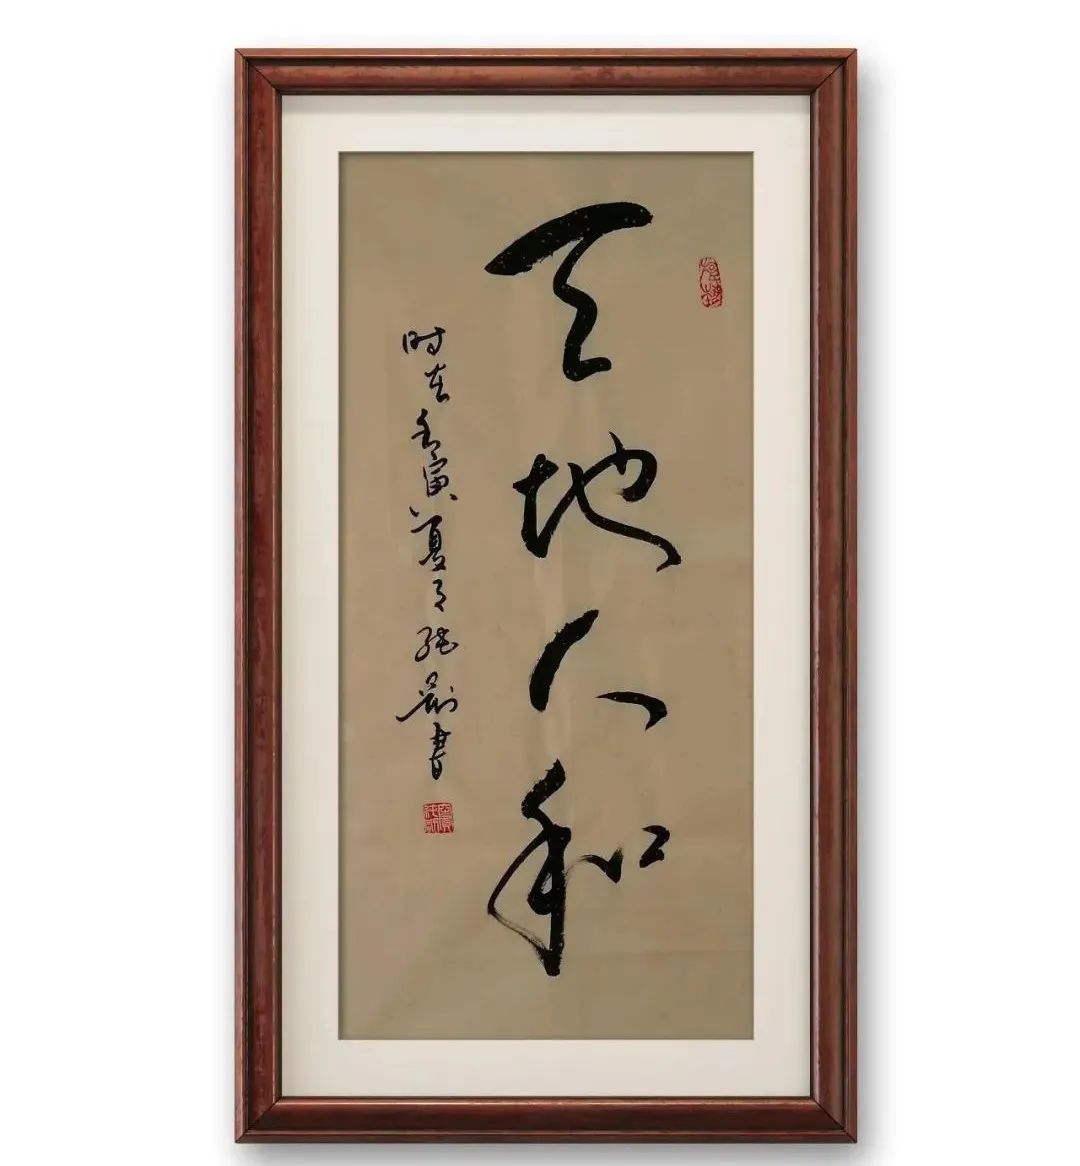 天地人和
时在壬寅夏月 书